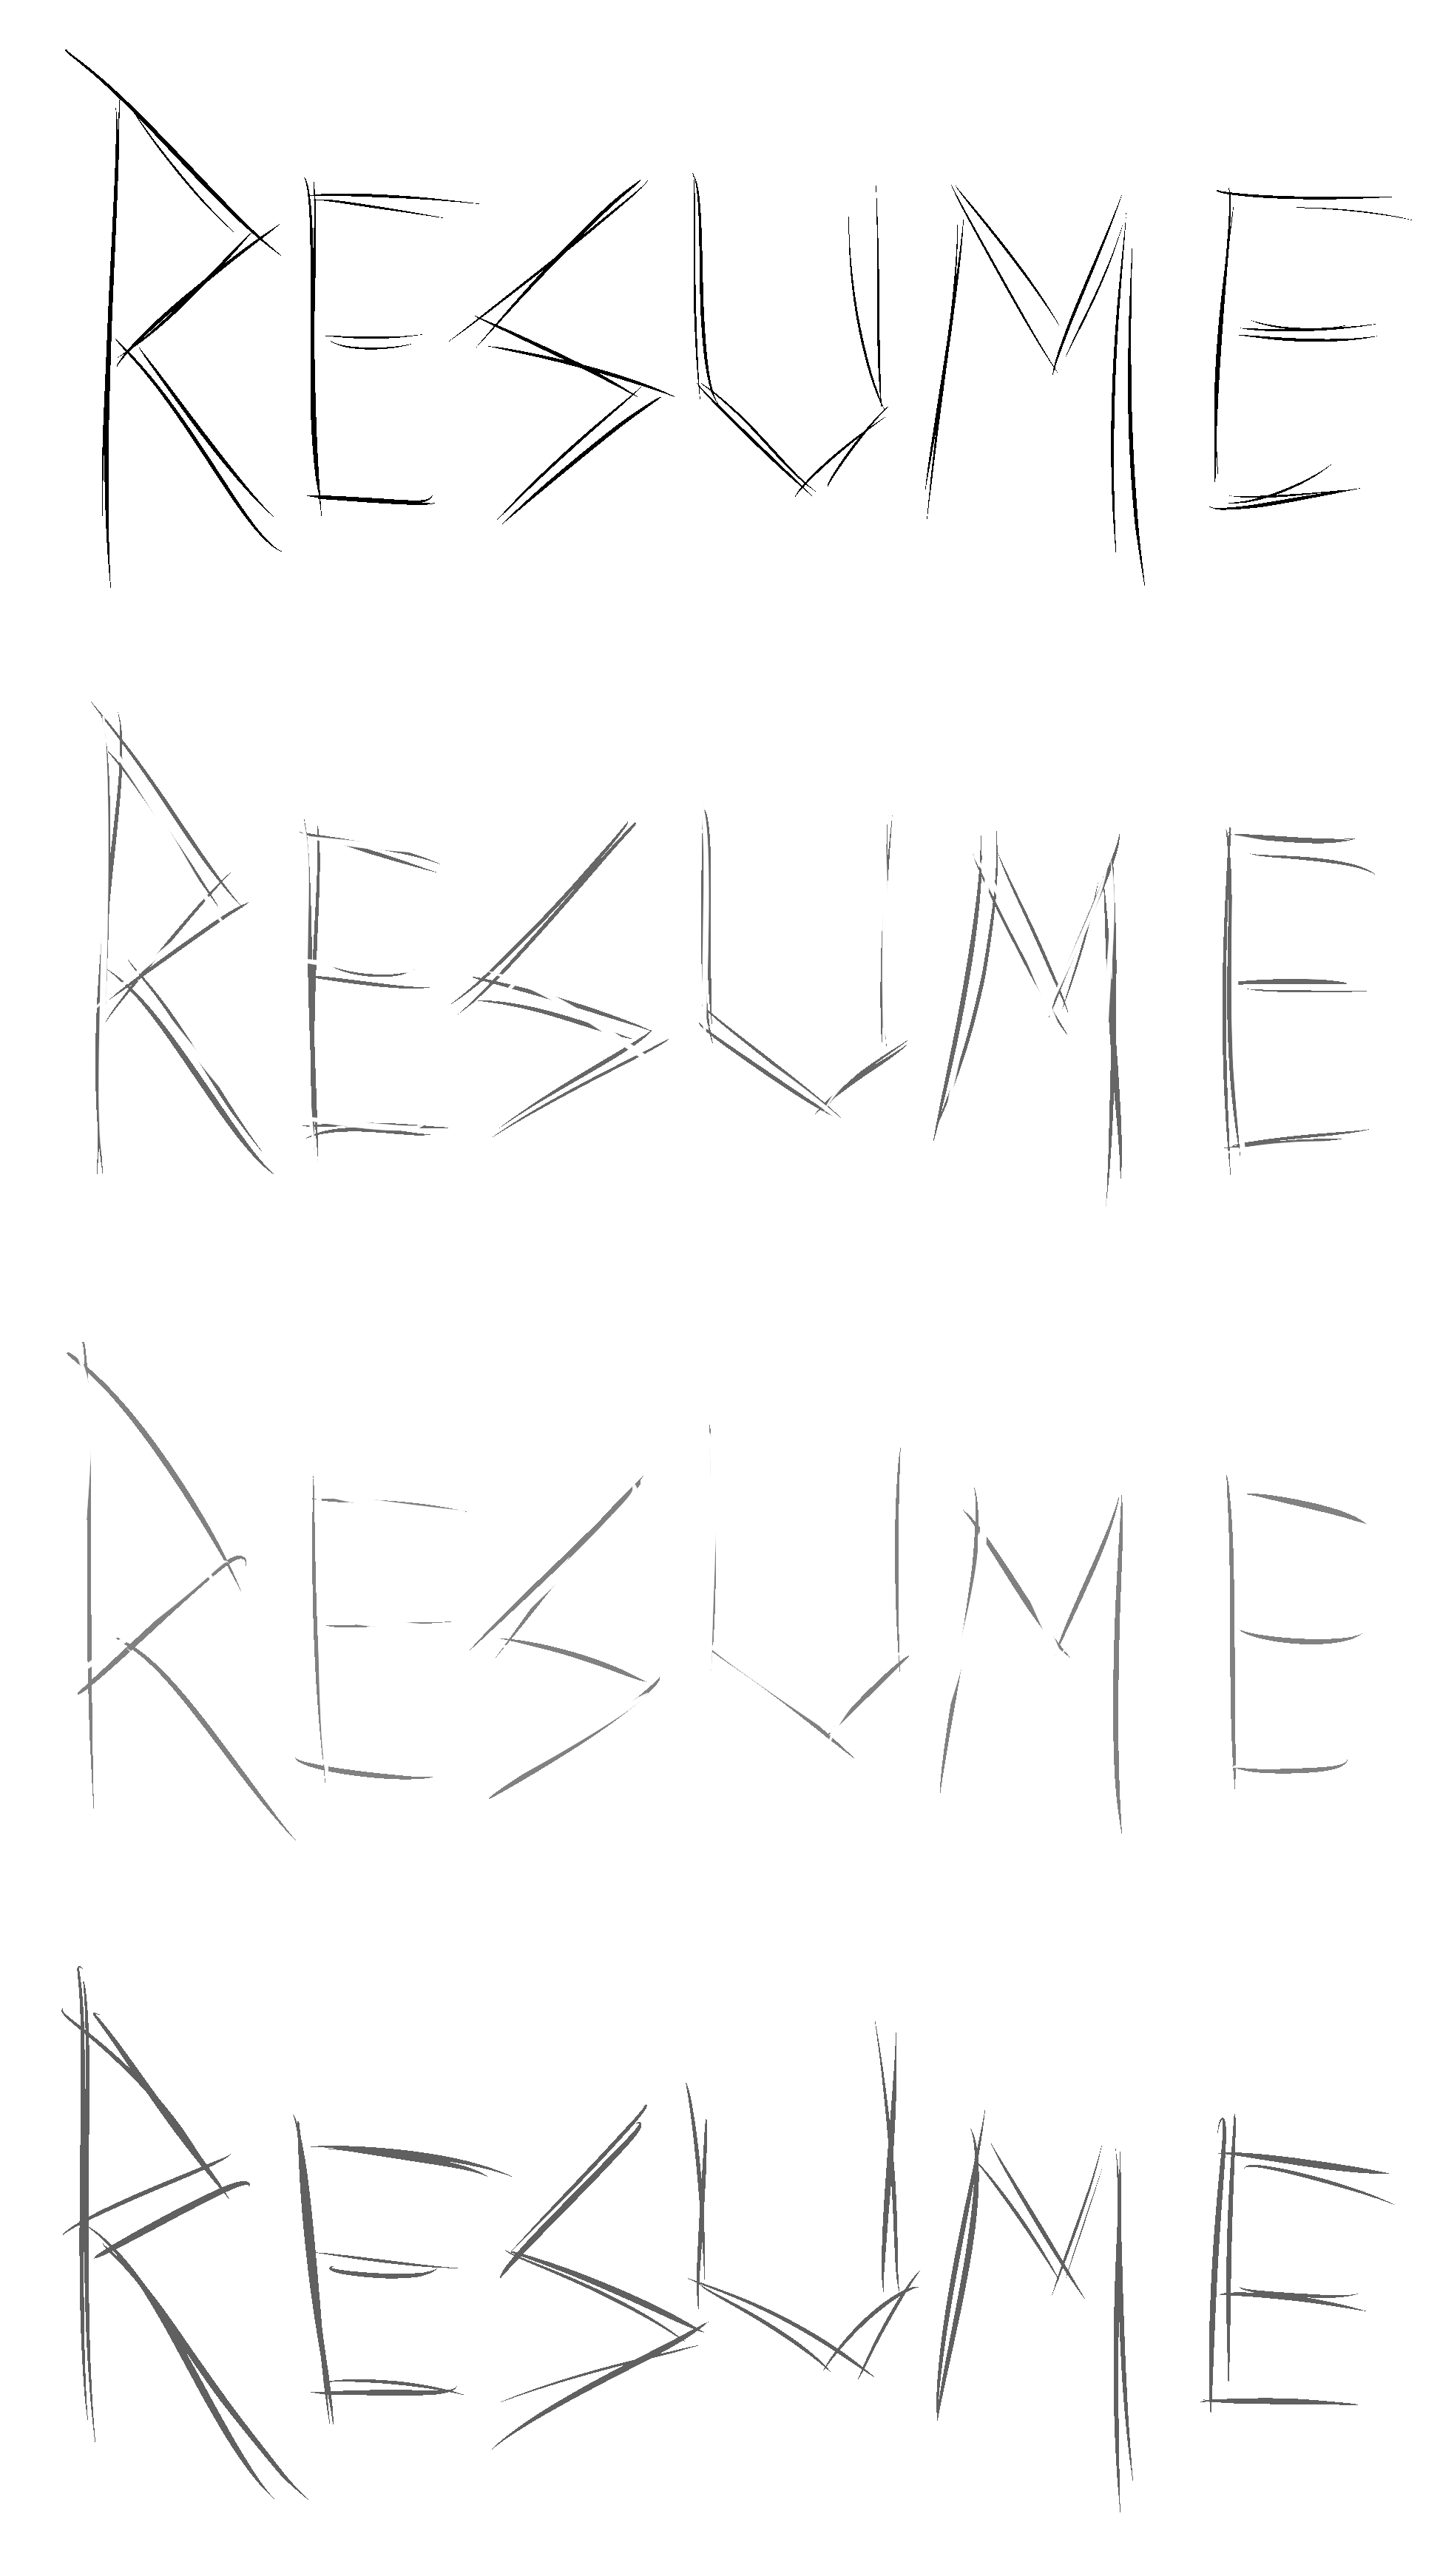 RESUME
RESUME
RESUME
RESUME